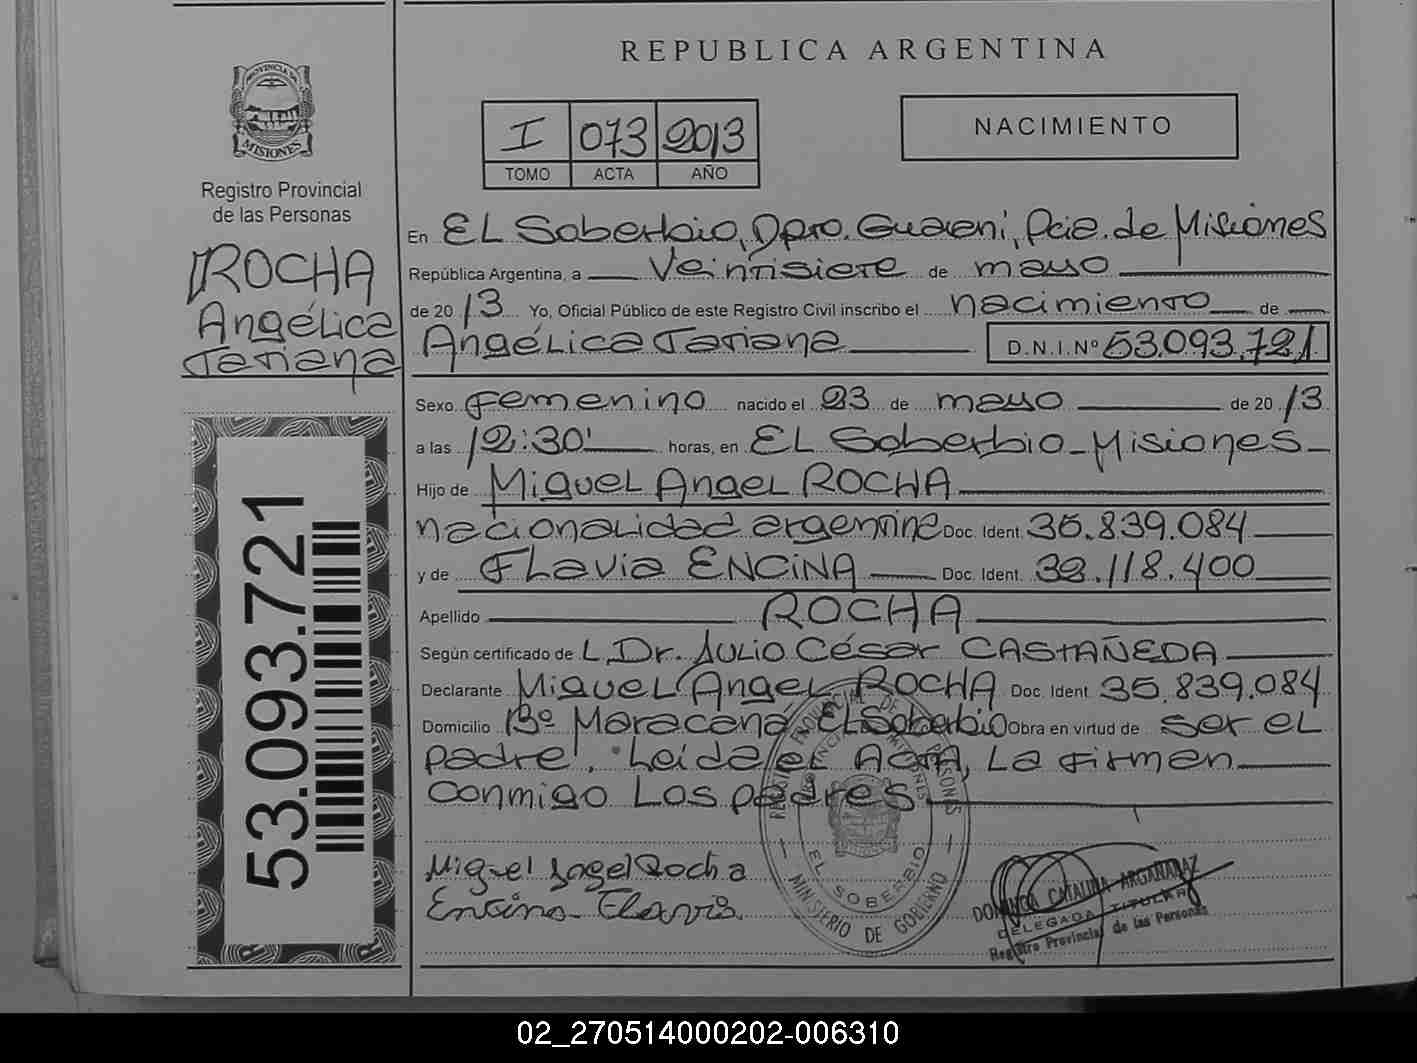 REPUBLICA ARGENTINA
PROVINCIA DE
MISIONES
Registro Provincial
de las Personas
ROCHA
Angélica
Tatiana
53.093.721
I 073 2013
TOMO ACTA AÑO
NACIMIENTO
En EL Soberbio, Dpto. Guaraní, Pcia. de Misiones
República Argentina, a Veintisiete de mayo
de 2013 Yo, Oficial Público de este Registro Civil inscribo el nacimiento de
Angélica Tatiana D.N.I.Nº 53.093.721
Sexo femenino nacido el 23 de mayo de 2013
a las 12:30' horas, en EL Soberbio-Misiones-
Hijo de Miguel Angel ROCHA
nacionalidad argentina Doc. Ident. 35.839.084
y de Flavia ENCINA Doc. Ident. 38.118.400
Apellido ROCHA
Según certificado de L, Dr. Julio César CASTAÑEDA
Declarante Miguel Angel ROCHA Doc. Ident. 35.839.084
Domicilio Bº Maracaná El Soberbio Obra en virtud de ser el
padre. Leída el Acta, La firman
conmigo Los padres
Miguel Angel Rocha
Encina Flavia
REGISTRO PROVINCIAL DE LAS PERSONAS
PROVINCIA DE MISIONES
EL SOBERBIO
MINISTERIO DE GOBIERNO
DOMINGA CATALINA ARGAÑARAZ
DELEGADA TITULAR
Registro Provincial de las Personas
02_270514000202-006310